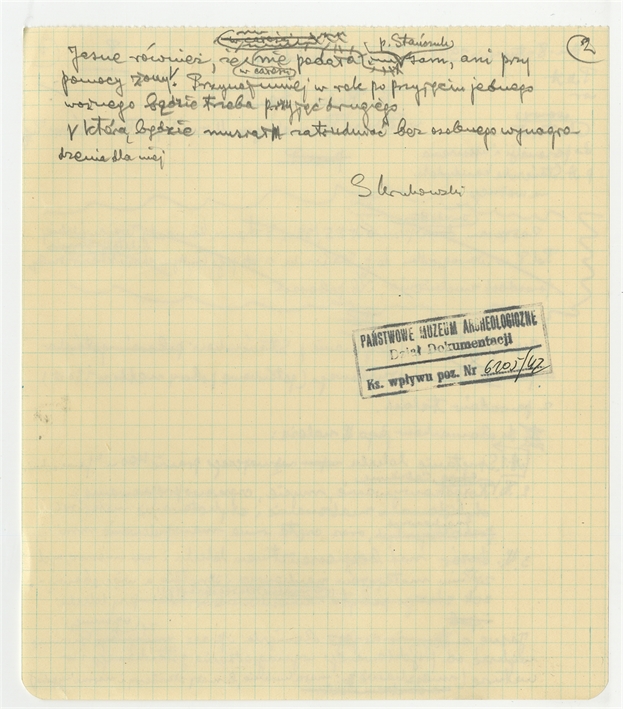 2
p. Stańczuk
Jasne również, że nie podoła sam, ani przy
w całości
pomocy żony. Przynajmniej w rok po przyjęciu jednego
woźnego będzie trzeba przyjąć drugiego
√ którą będzie musiał zatrudniać bez osobnego wynagro-
dzenia dla niej
S Krukowski
PAŃSTWOWE MUZEUM ARCHEOLOGICZNE
Dział Dokumentacji
Ks. wpływu poz. Nr 6205/42